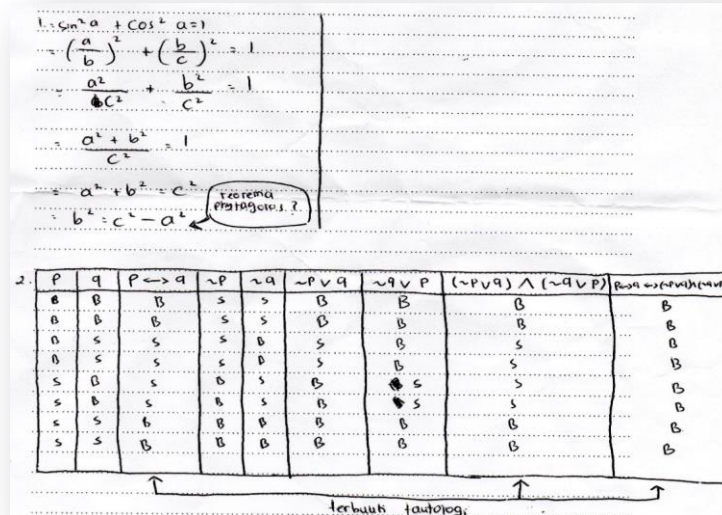 1. sin² a + cos² a = 1
= (a/b)² + (b/c)² = 1
= a²/c² + b²/c² = 1
= (a² + b²)/c² = 1
= a² + b² = c²
= b² = c² - a²
teorema
pytagoras?
2.
p q p ↔ q ~p ~q ~p ∨ q ~q ∨ p (~p ∨ q) ∧ (~q ∨ p) p↔q ↔ (~p∨q)∧(~q∨p)
B B B S S B B B B
B B B S S B B B B
B S S S B S B S B
B S S S B S B S B
S B S B S B S S B
S B S B S B S S B
S S B B B B B B B
S S B B B B B B B
terbukti tautologi